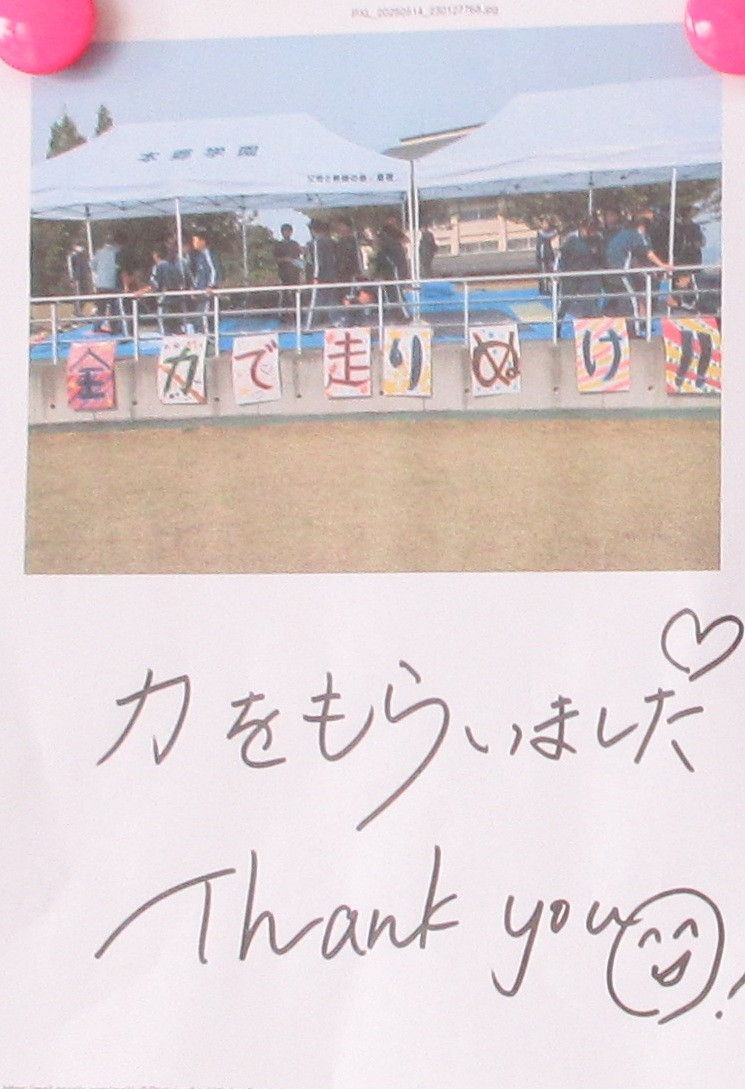 PXL_20250914_230127768.jpg
本郷学園
全力で走りぬけ!!
力をもらいました♡
Thank you!